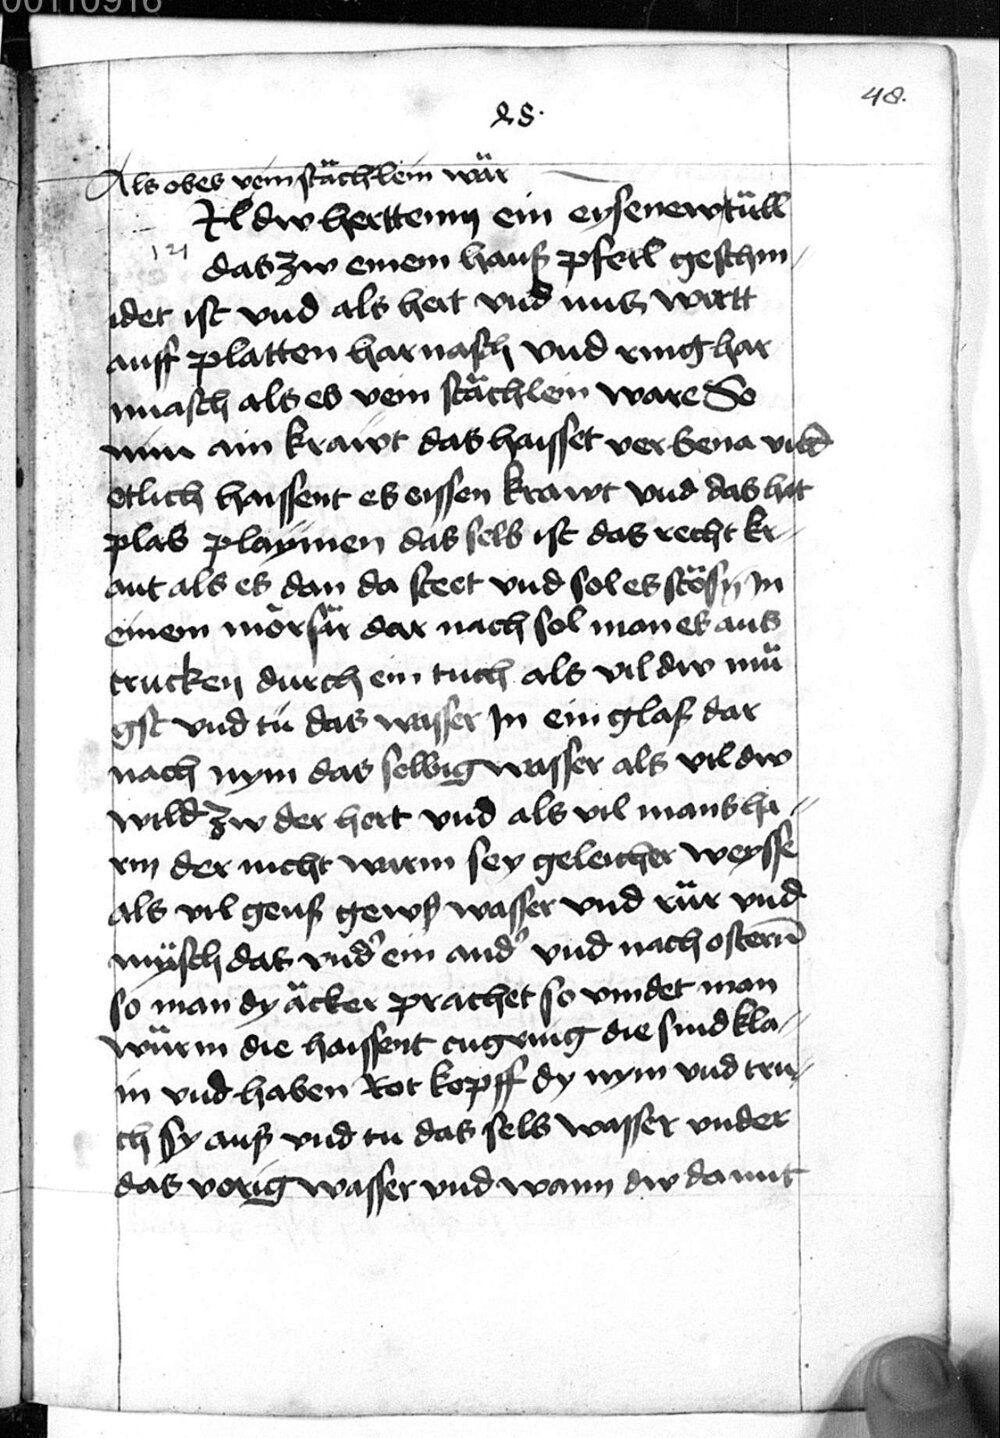 00110916
48.
28.
Als obes vein stächlein wär
Il dw herttenn ein eysenew tüll
121 das zw einem hauß pfeil geschm-
idet ist vnd als hert vnd nuß wirtt
auff platten harnasch vnd ring har
nnasch als es vein stächlein ware So
nim ain krawt das haisset verbena vnd
etlich haissent es eissen krawt vnd das hat
plab playmen das selb ist das recht kr-
aut als es dan da steet vnd sol es stösn In
einem mörsär dar nach sol man es aus
trucken durch ein tuch als vil dw mü
gst vnd tü das wasser In ein glaß dar
nach nym das selbig wasser als vil dw
wild zw der hert vnd als vil mans ha-
rm der nicht warm sey geleicher weysse
als vil genß wasser vnd rür vnd
mysch das vnd' ein and' vnd nach ostern
so man dy äcker prachet so vindet man
würm die haissent engring die sind kla-
in vnd haben Rot kopff dy nym vnd tru-
ch sy auß vnd tu das selb wasser vnder
das vorig wasser vnd wann dw damit